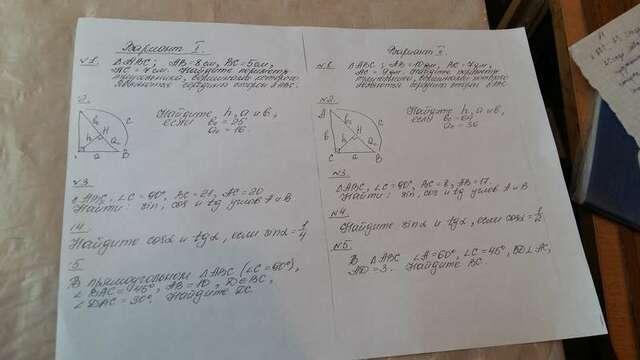 Вариант I.
№1. ΔABC; AB = 8 см, BC = 5 см,
AC = 7 см. Найдите периметр
треугольника, вершинами которого
являются середины сторон ΔABC.
2.
Найдите h, a и b,
если bc = 25
ac = 16.
bc
H
C
h
ac
a
B
№3.
ΔABC, ∠C = 90°, BC = 21, AC = 20
Найти: sin, cos и tg углов A и B
14.
Найдите cosα и tgα, если sinα = 1/4
5
В прямоугольном ΔABC (∠C = 90°),
∠BAC = 45°, AB = 10, D∈BC,
∠DAC = 30°. Найдите DC.
Вариант
№1. ΔABC; AB = 10 дм, BC = 7 дм,
AC = 9 дм. Найдите периметр
треугольника, вершинами которого
являются середины сторон ΔABC
№2.
Найдите h, a и b,
если bc = 64
ac = 36
A
bc
H
C
b
h
ac
C
a
B
№3.
ΔABC, ∠C = 90°, BC = 8, AB = 17.
Найти: sin, cos и tg углов A и B
№4.
Найдите sinα и tgα, если cosα = 1/2
№5.
В ΔABC ∠A = 60°, ∠C = 45°, BD⊥AC,
AD = 3. Найдите BC.